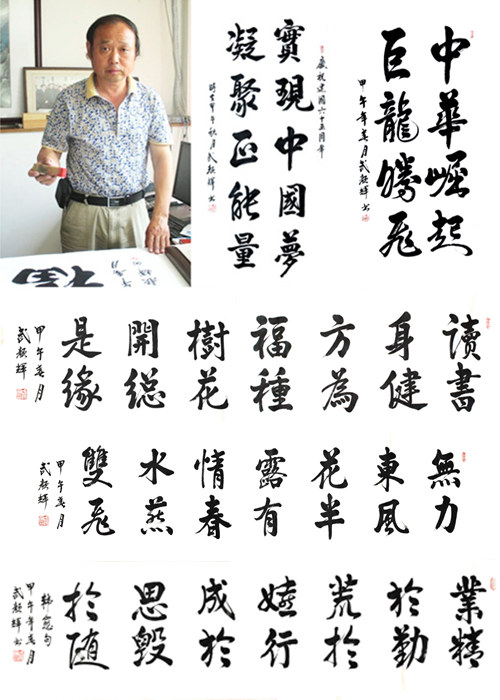 中華崛起
巨龍騰飛
甲午年春月武輝书
慶祝建國六十五周年
實現中國夢
凝聚正能量
時在甲午秋月武輝书
讀書
身健
方為
福種
樹花
開総
是缘
甲午春月
武輝
無力
東風
花半
露有
情春
水燕
雙飛
甲午春月
武輝
業精
於勤
荒於
嬉行
成於
思毀
於随
韓愈句
甲午年春月
武輝书